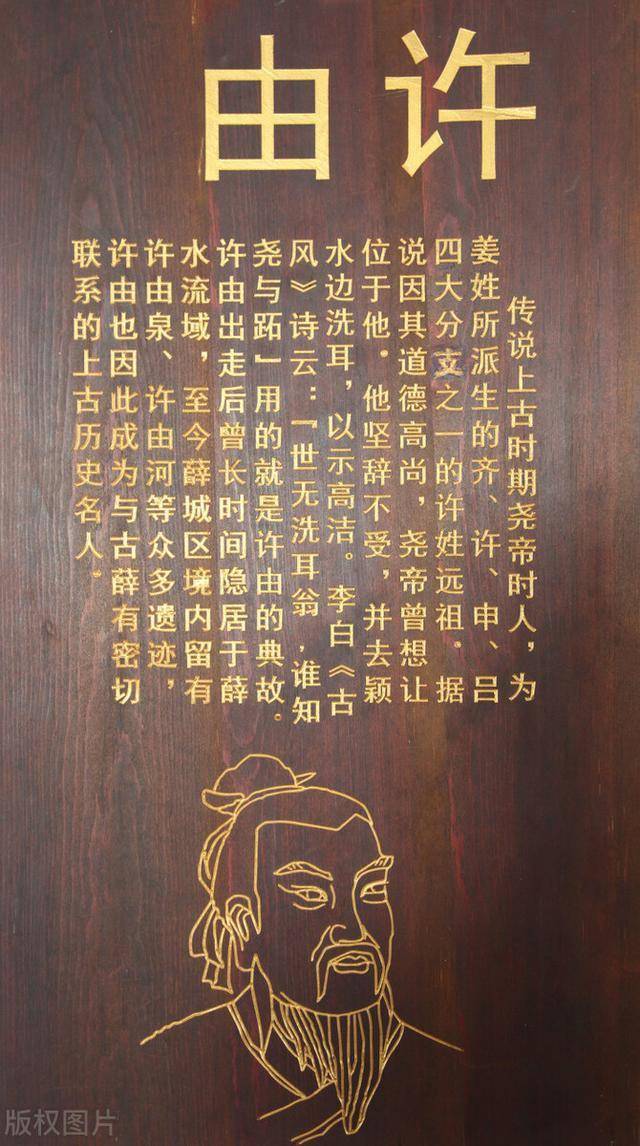 许由
传说上古时期尧帝时人，为
姜姓所派生的齐、许、申、吕
四大分支之一的许姓远祖。据
说因其道德高尚，尧帝曾想让
位于他。他坚辞不受，并去颍
水边洗耳，以示高洁。李白《古
风》诗云：“世无洗耳翁，谁知
尧与跖”用的就是许由的典故。
许由出走后曾长时间隐居于薛
水流域，至今薛城区境内留有
许由泉、许由河等众多遗迹，
许由也因此成为与古薛有密切
联系的上古历史名人。
版权图片